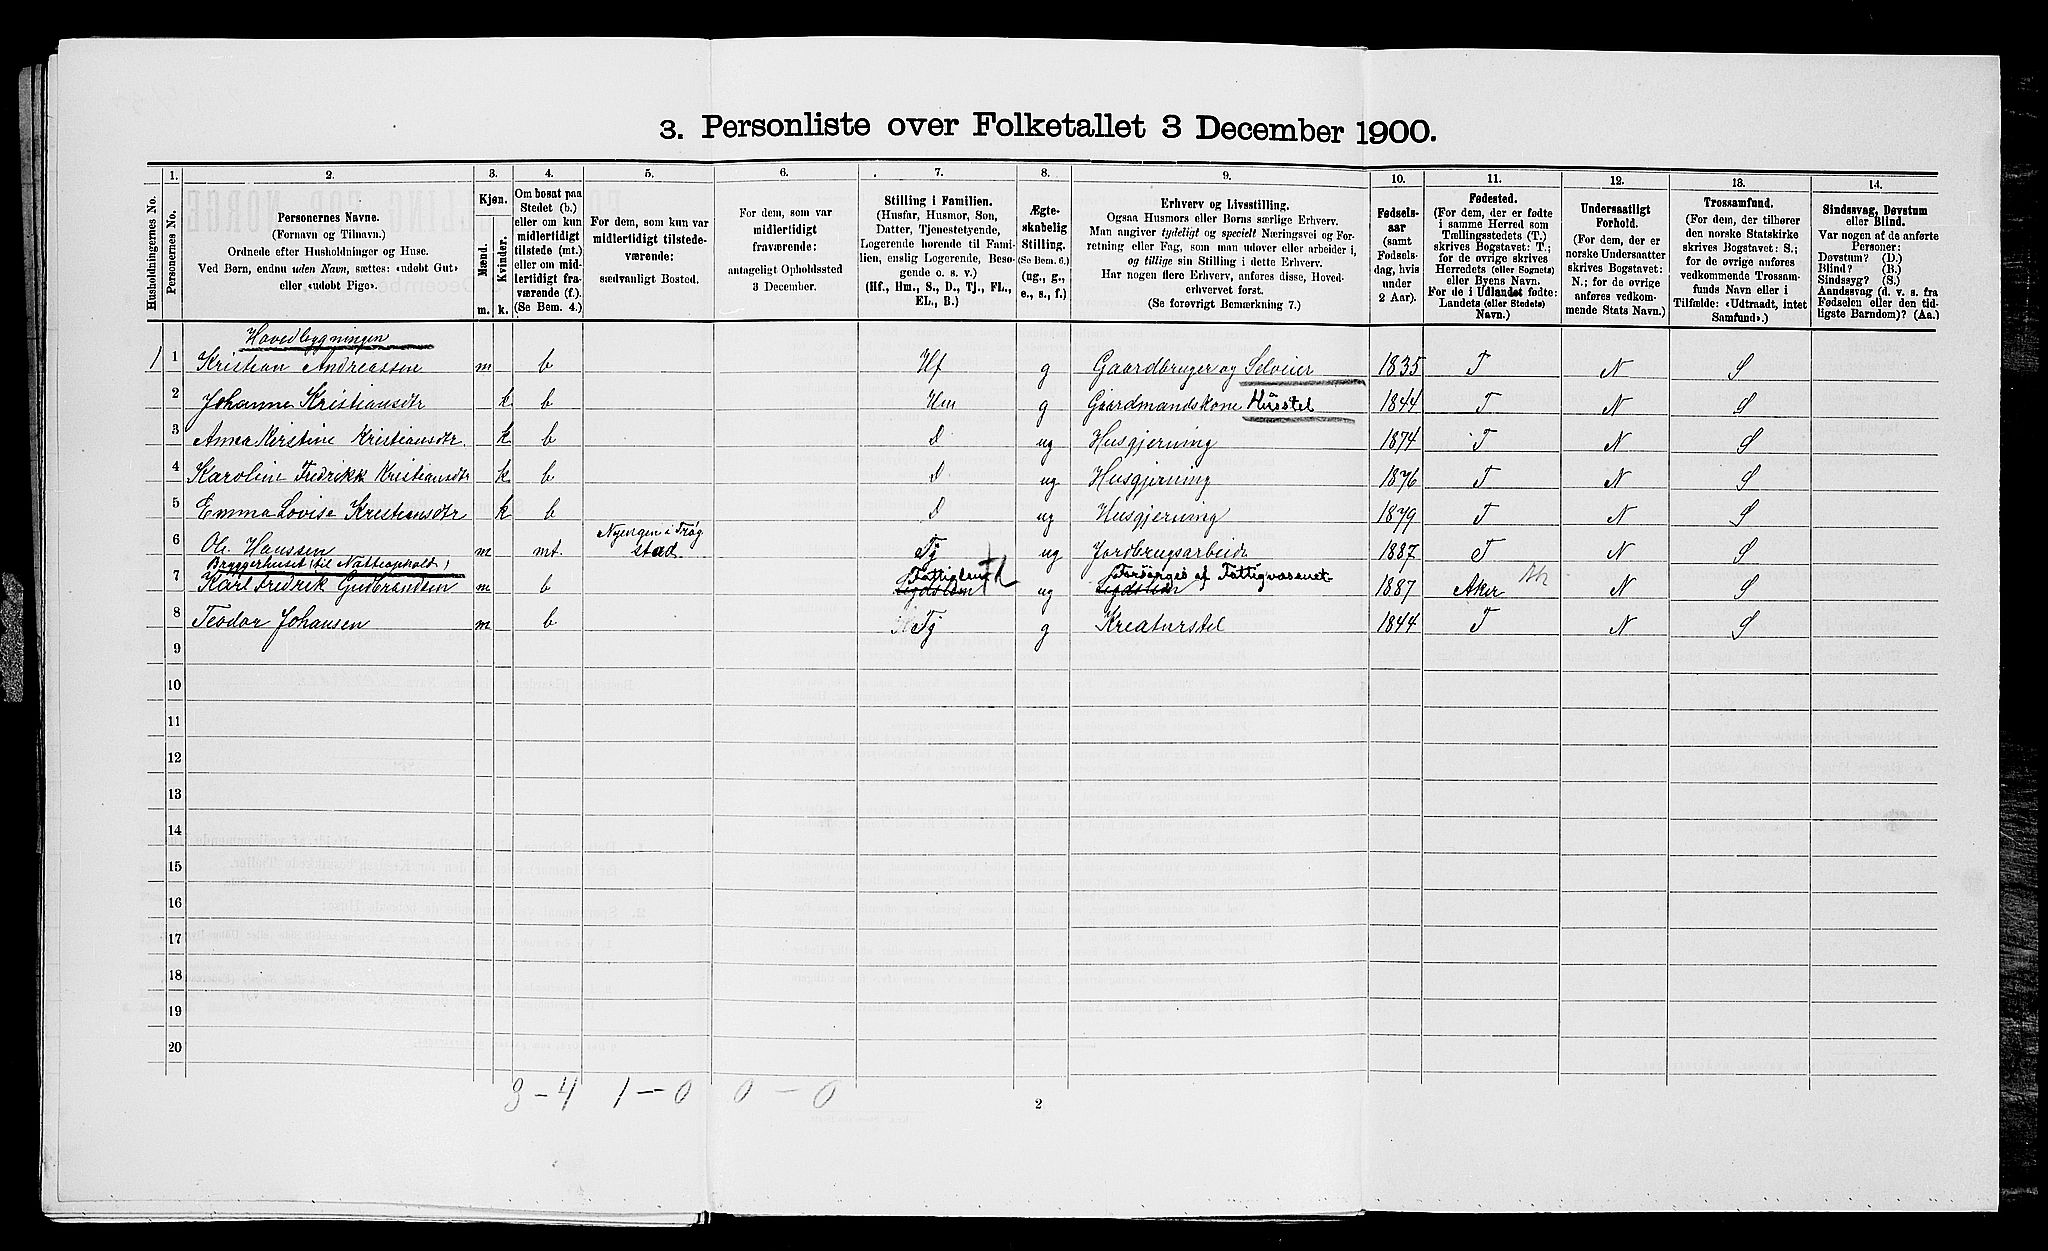 3. Personliste over Folketallet 3 December 1900.
Husholdningernes No.
1.
Personernes No.
2.
Personernes Navne.
(Fornavn og Tilnavn.)
Ordnede efter Husholdninger og Huse.
Ved Børn, endnu uden Navn, sættes: «udøbt Gut»
eller «udøbt Pige».
3.
Kjøn.
Mænd.
Kvinder.
m. k.
4.
Om bosat paa
Stedet (b.)
eller om kun
midlertidigt
tilstede (mt.)
eller om mid-
lertidigt fra-
værende (f.).
(Se Bem. 4.)
5.
For dem, som kun var
midlertidigt tilstede-
værende:
sædvanligt Bosted.
6.
For dem, som var
midlertidigt
fraværende:
antageligt Opholdssted
3 December.
7.
Stilling i Familien.
(Husfar, Husmor, Søn,
Datter, Tjenestetyende,
Logerende hørende til Fami-
lien, enslig Logerende, Besø-
gende o. s. v.)
(Hf., Hm., S., D., Tj., FL.,
EL., B.)
8.
Ægte-
skabelig
Stilling.
(Se Bem. 6.)
(ug., g.,
e., s., f.)
9.
Erhverv og Livsstilling.
Ogsaa Husmors eller Børns særlige Erhverv.
Man angiver tydeligt og specielt Næringsvei og For-
retning eller Fag, som man udøver eller arbeider i,
og tillige sin Stilling i dette Erhverv.
Har nogen flere Erhverv, anføres disse, Hoved-
erhvervet først.
(Se forøvrigt Bemærkning 7.)
10.
Fødsels-
aar
(samt
Fødsels-
dag, hvis
under
2 Aar).
11.
Fødested.
(For dem, der er fødte
i samme Herred som
Tællingsstedets (T.)
skrives Bogstavet: T.;
for de øvrige skrives
Herredets (eller Sognets)
eller Byens Navn.
For de i Udlandet fødte:
Landets (eller Stedets)
Navn.)
12.
Undersaatligt
Forhold.
(For dem, der er
norske Undersaatter
skrives Bogstavet:
N.; for de øvrige
anføres vedkom-
mende Stats Navn.)
13.
Trossamfund.
(For dem, der tilhører
den norske Statskirke
skrives Bogstavet: S.;
for de øvrige anføres
vedkommende Trossam-
funds Navn eller i
Tilfælde: «Udtraadt, intet
Samfund».)
14.
Sindssvag, Døvstum
eller Blind.
Var nogen af de anførte
Personer:
Døvstum? (D.)
Blind? (B.)
Sindssyg? (S.)
Aandssvag (d. v. s. fra
Fødselen eller den tid-
ligste Barndom)? (Aa.)
Hovedbygningen
1 1 Kristian Andreassen m b Hf g Gaardbruger og Selveier 1835 T N S
2 Johanne Kristiansdtr k b Hm g Gaardmandskone Husstel 1844 T N S
3 Anna Kirstine Kristiansdtr. k b D ug Husgjerning 1874 T N S
4 Karoline Fredrikk Kristiansdtr k b D ug Husgjerning 1876 T N S
5 Emma Lovise Kristiansdtr k b D ug Husgjerning 1879 T N S
Nyengen i Trøg
6 Ole Hanssen m mt. stad Tj ug Jordbrugsarbeide 1887 T N S
Bryggerhuset (til Natteophold)
Fattiglem Forsørges af Fattigvæsenet
7 Karl Fredrik Gudbrandsen m b ug 1887 Aker N S
8 Teodor Johansen m b Tj g Kreaturstel 1844 T N S
9
10
11
12
13
14
15
16
17
18
19
20
3 - 4 1 - 0 0 - 0
2